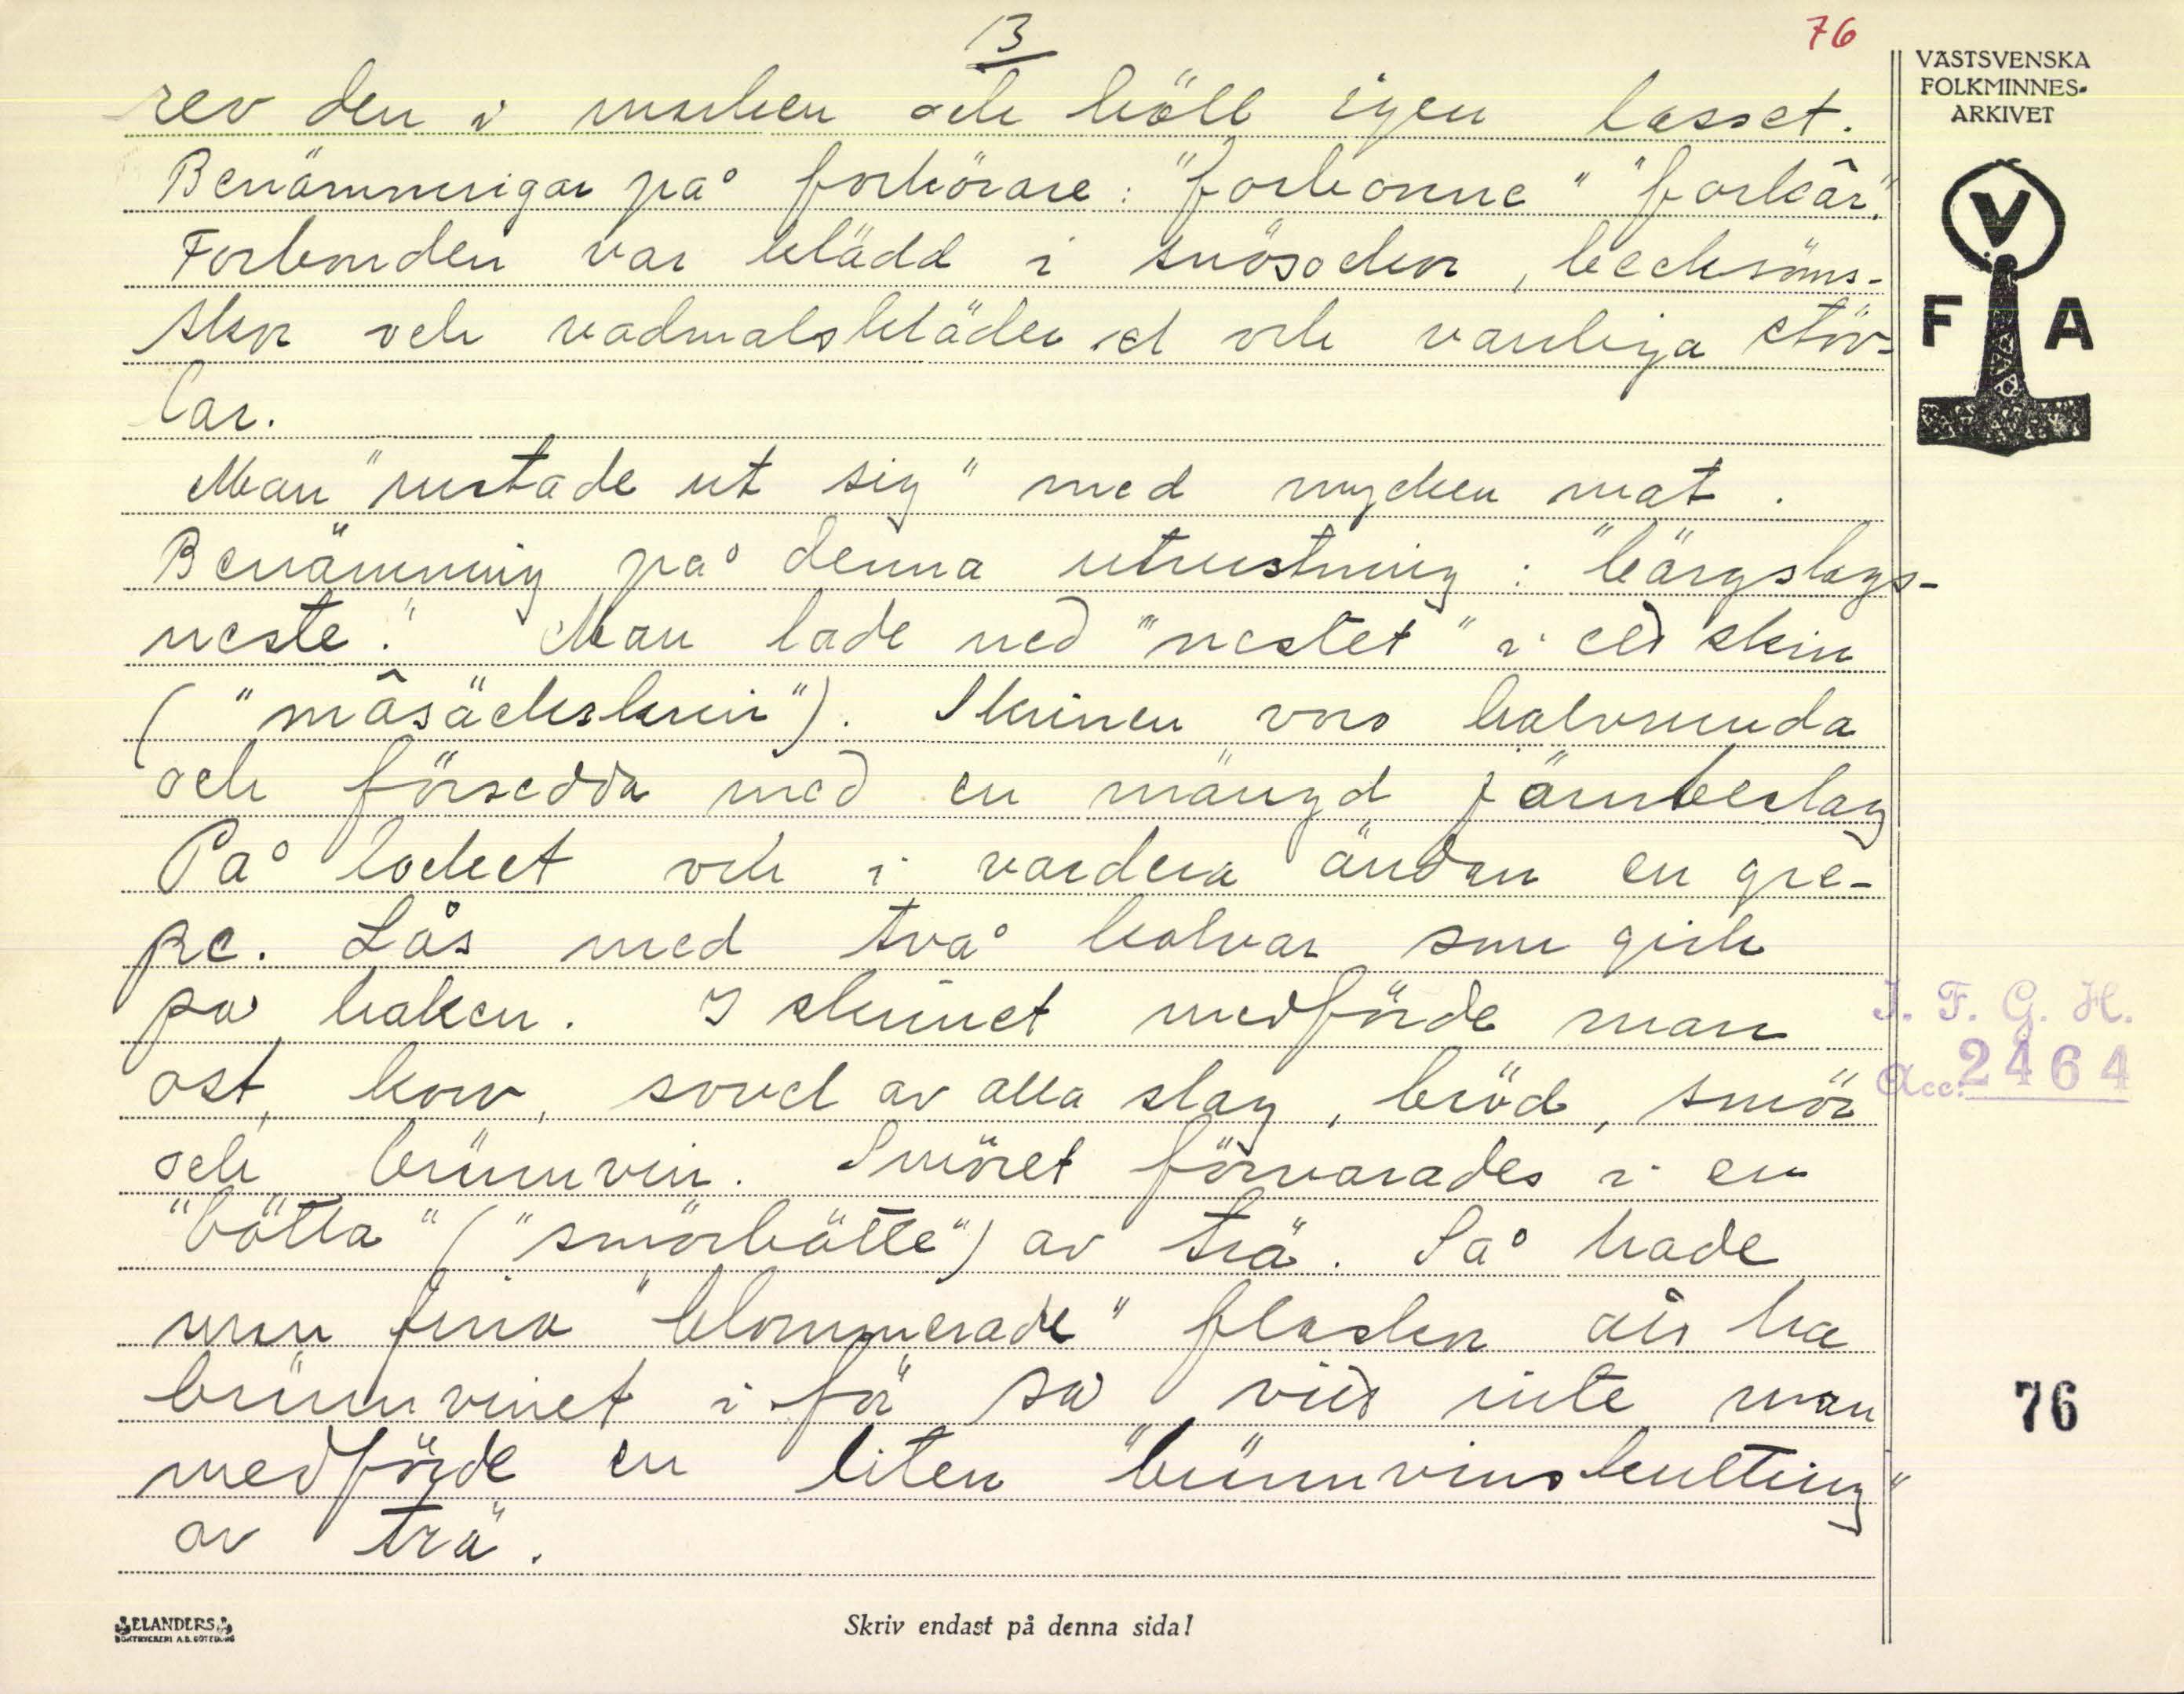 13
76
rev den i marken och höll igen lasset.
Benämningar på forkörare: "forbonne" "forkâr."
Forbonden var klädd i snösockor, becksöms-
skor och vadmalskläder el och vanliga stöv-
lar.
Man "rustade ut sig" med mycken mat.
Benämning på denna utrustning: "bärgslags-
neste." Man lade ned "nestet" i ett skrin
("mâsäckskrin"). Skrinen voro halvrunda
och försedda med en mängd järnbeslag
På locket och i vardera ändan en gre-
pe. Lås med två kolvar som gick
på haken. I skrinet medförde man
ost, korv, sovel av alla slag, bröd, smör
och brännvin. Smöret förvarades i en
"bötta" ("smörbötte") av trä. Så hade
man fina "blommerade" flaskor att ha
brännvinet i för så vitt inte man
medförde en liten "brännvinskutting"
av trä.
VÄSTSVENSKA
FOLKMINNES-
ARKIVET
V
F A
I. F. G. H.
Acc. 2464
76
ELANDERS
BOKTRYCKERI A.B. GÖTEBORG
Skriv endast på denna sida!